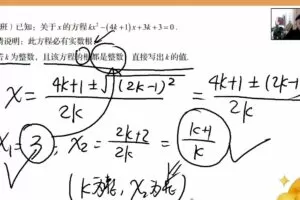 班）已知：关于 x 的方程 kx² − (4k + 1)x + 3k + 3 = 0 .
说明：此方程必有实数根
若 k 为整数，且该方程的根都是整数，直接写出 k 的值.
x = (4k+1 ± √(2k−1)²) / 2k = (4k+1 ± (2k
x₁ = 3 ; x₂ = (2k+2) / 2k = (k+1) / k
(k为整, x₂为